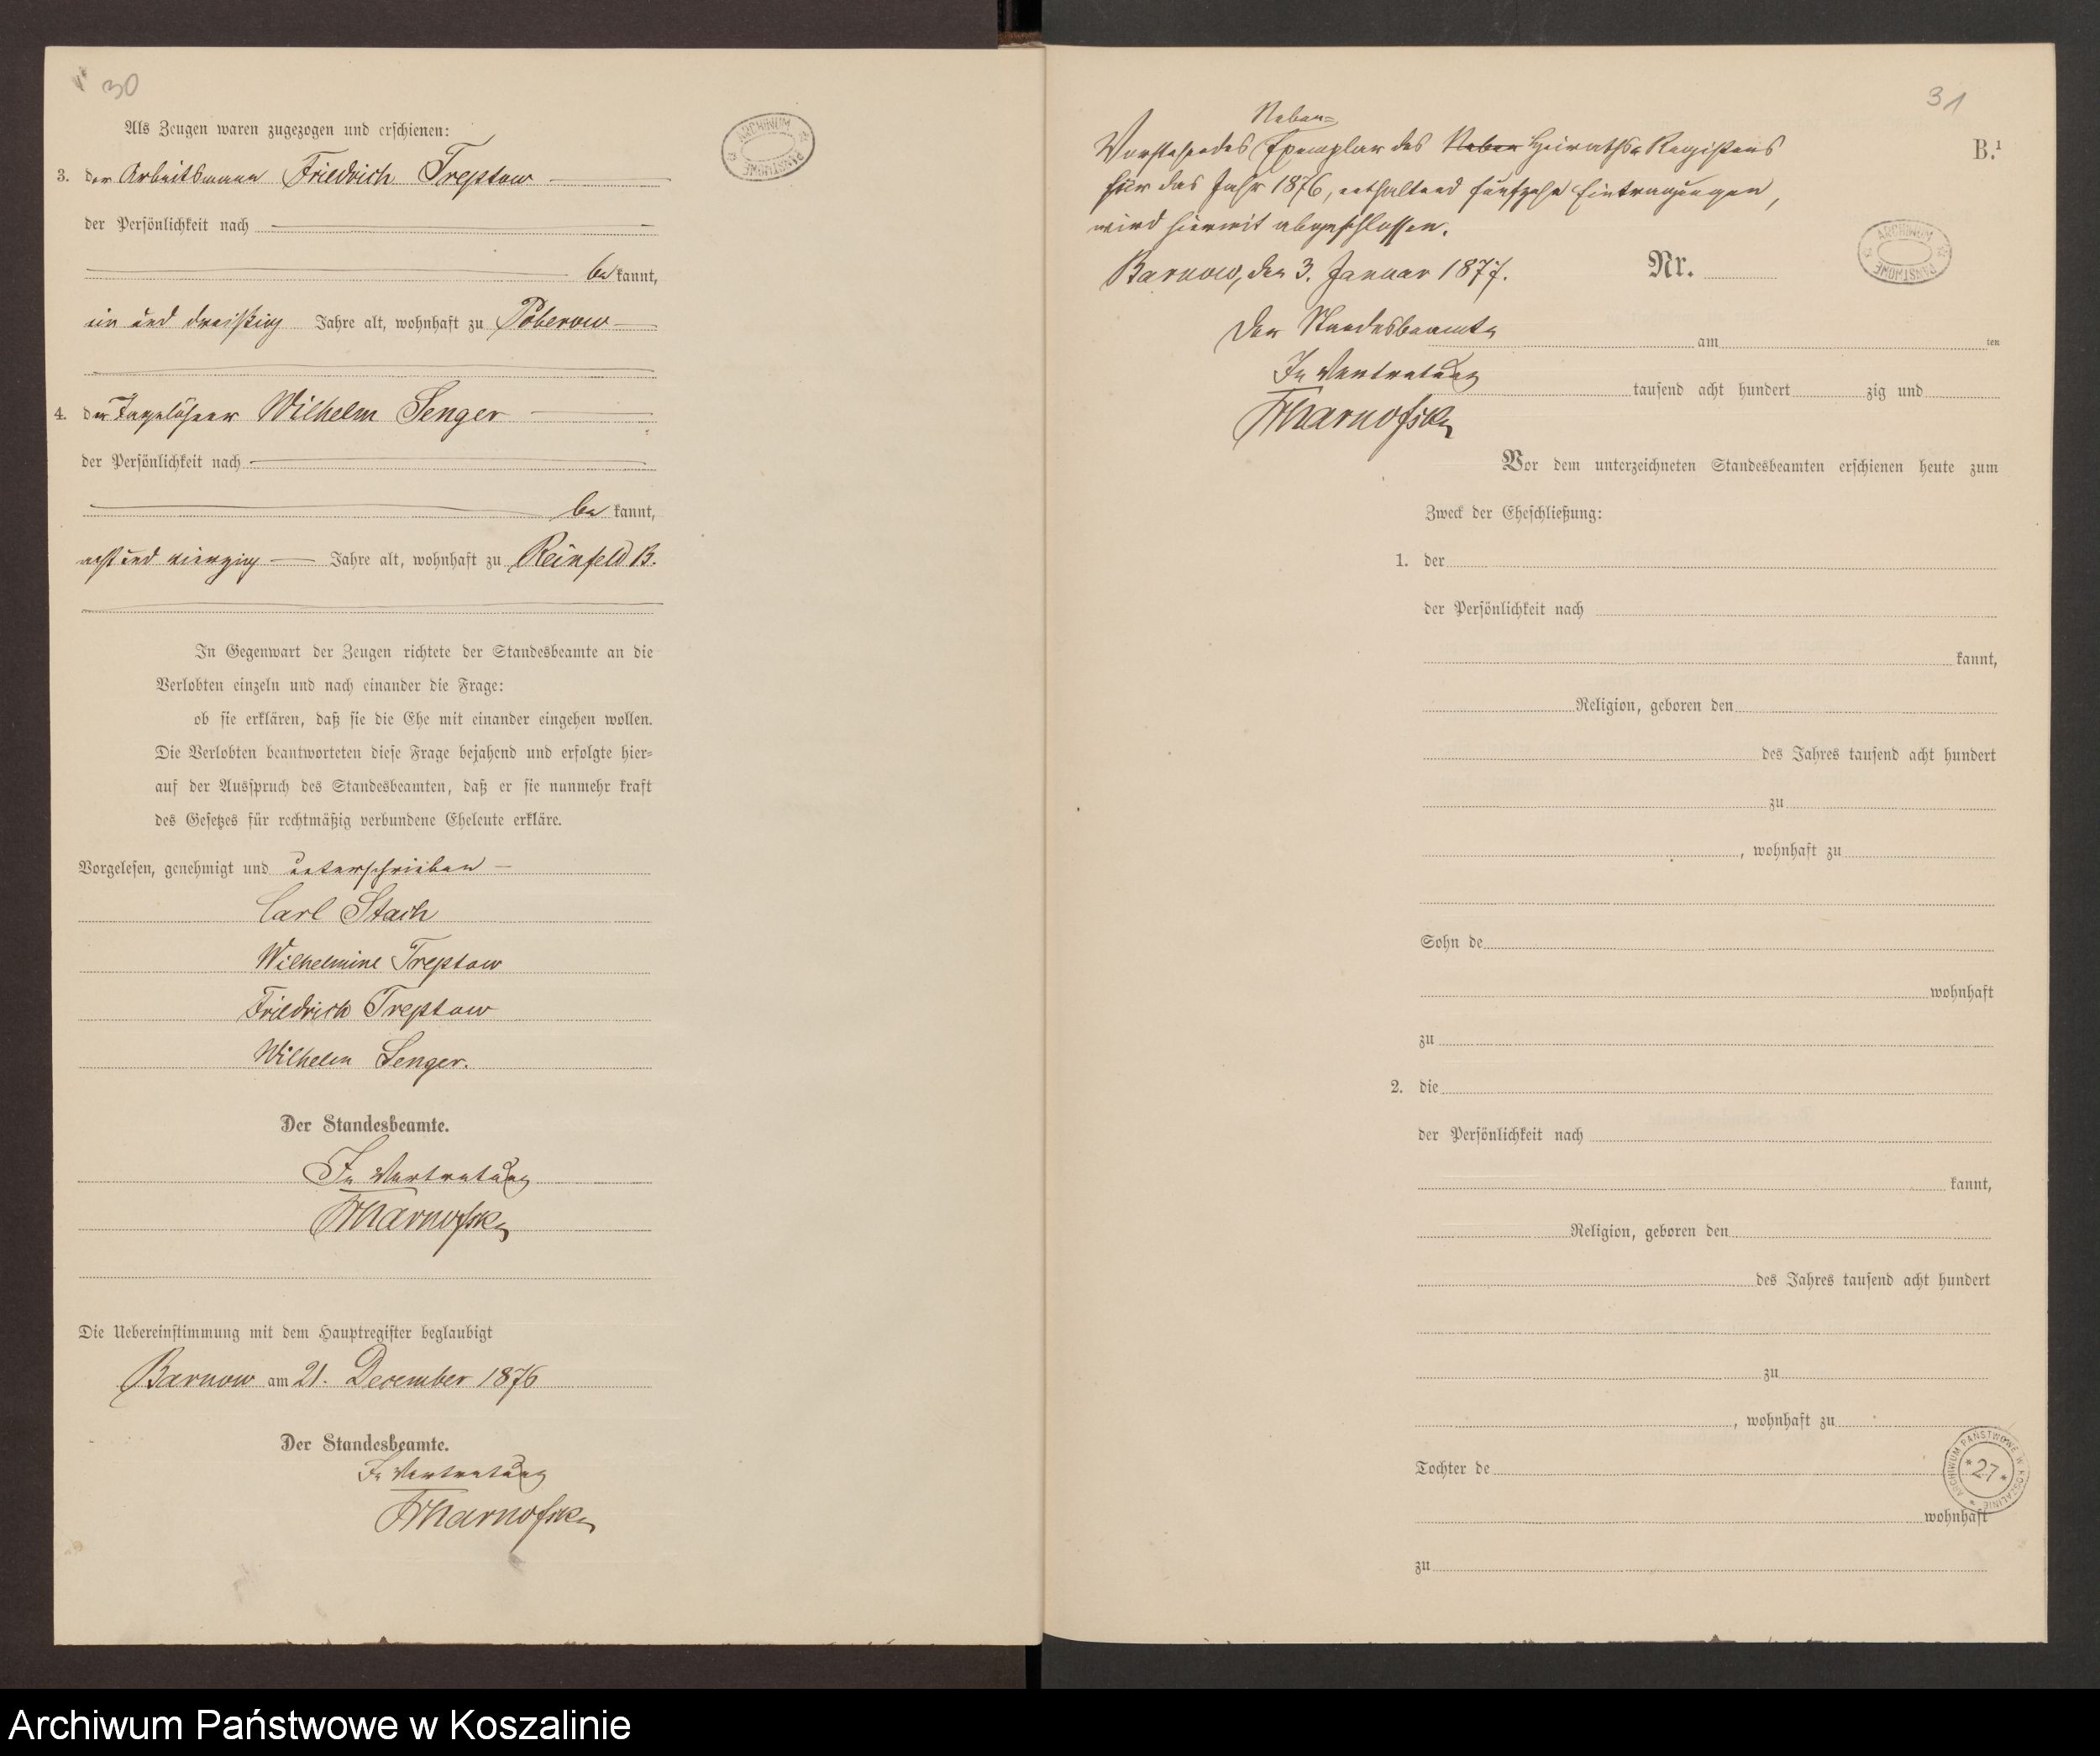 30
Als Zeugen waren zugezogen und erschienen:
3. der Arbeitsmann Friedrich Treptow
der Persönlichkeit nach
be kannt,
ein und dreißig Jahre alt, wohnhaft zu Poberow
4. der Tagelöhner Wilhelm Senger
der Persönlichkeit nach
be kannt,
acht und vierzig Jahre alt, wohnhaft zu Reinfeld B.
In Gegenwart der Zeugen richtete der Standesbeamte an die
Verlobten einzeln und nach einander die Frage:
ob sie erklären, daß sie die Ehe mit einander eingehen wollen.
Die Verlobten beantworteten diese Frage bejahend und erfolgte hier-
auf der Ausspruch des Standesbeamten, daß er sie nunmehr kraft
des Gesetzes für rechtmäßig verbundene Eheleute erkläre.
Vorgelesen, genehmigt und unterschrieben
Carl Stach
Wilhelmine Treptow
Friedrich Treptow
Wilhelm Senger.
Der Standesbeamte.
In Vertretung
Die Uebereinstimmung mit dem Hauptregister beglaubigt
Barnow am 21. December 1876
Der Standesbeamte.
In Vertretung
ARCHIWUM PAŃSTWOWE
31
B.¹
Neben-
Vorstehendes Exemplar des Neben Heiraths-Registers
für das Jahr 1876, enthaltend fünfzehn Eintragungen,
wird hiermit abgeschlossen.
Barnow, den 3. Januar 1877.
Nr.
ARCHIWUM PAŃSTWOWE
Der Standesbeamte
am ten
In Vertretung
tausend acht hundert zig und
Vor dem unterzeichneten Standesbeamten erschienen heute zum
Zweck der Eheschließung:
1. der
der Persönlichkeit nach
kannt,
Religion, geboren den
des Jahres tausend acht hundert
zu
, wohnhaft zu
Sohn de
wohnhaft
zu
2. die
der Persönlichkeit nach
kannt,
Religion, geboren den
des Jahres tausend acht hundert
zu
, wohnhaft zu
Tochter de
wohnhaft
zu
ARCHIWUM PAŃSTWOWE W KOSZALINIE
*27*
Archiwum Państwowe w Koszalinie